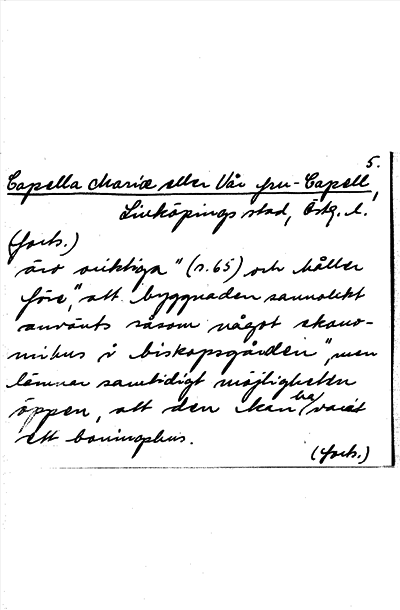 5.
Capella Mariæ eller Vår fru-Capell,
Linköpings stad, Östg. l.
(forts.)
äro oriktiga" (s. 65) och håller
före, "att byggnaden sannolikt
använts såsom något ekono-
mihus i biskopsgården", men
lämnar samtidigt möjligheten
öppen, att den kan ha varit
ett boningshus.
(forts.)